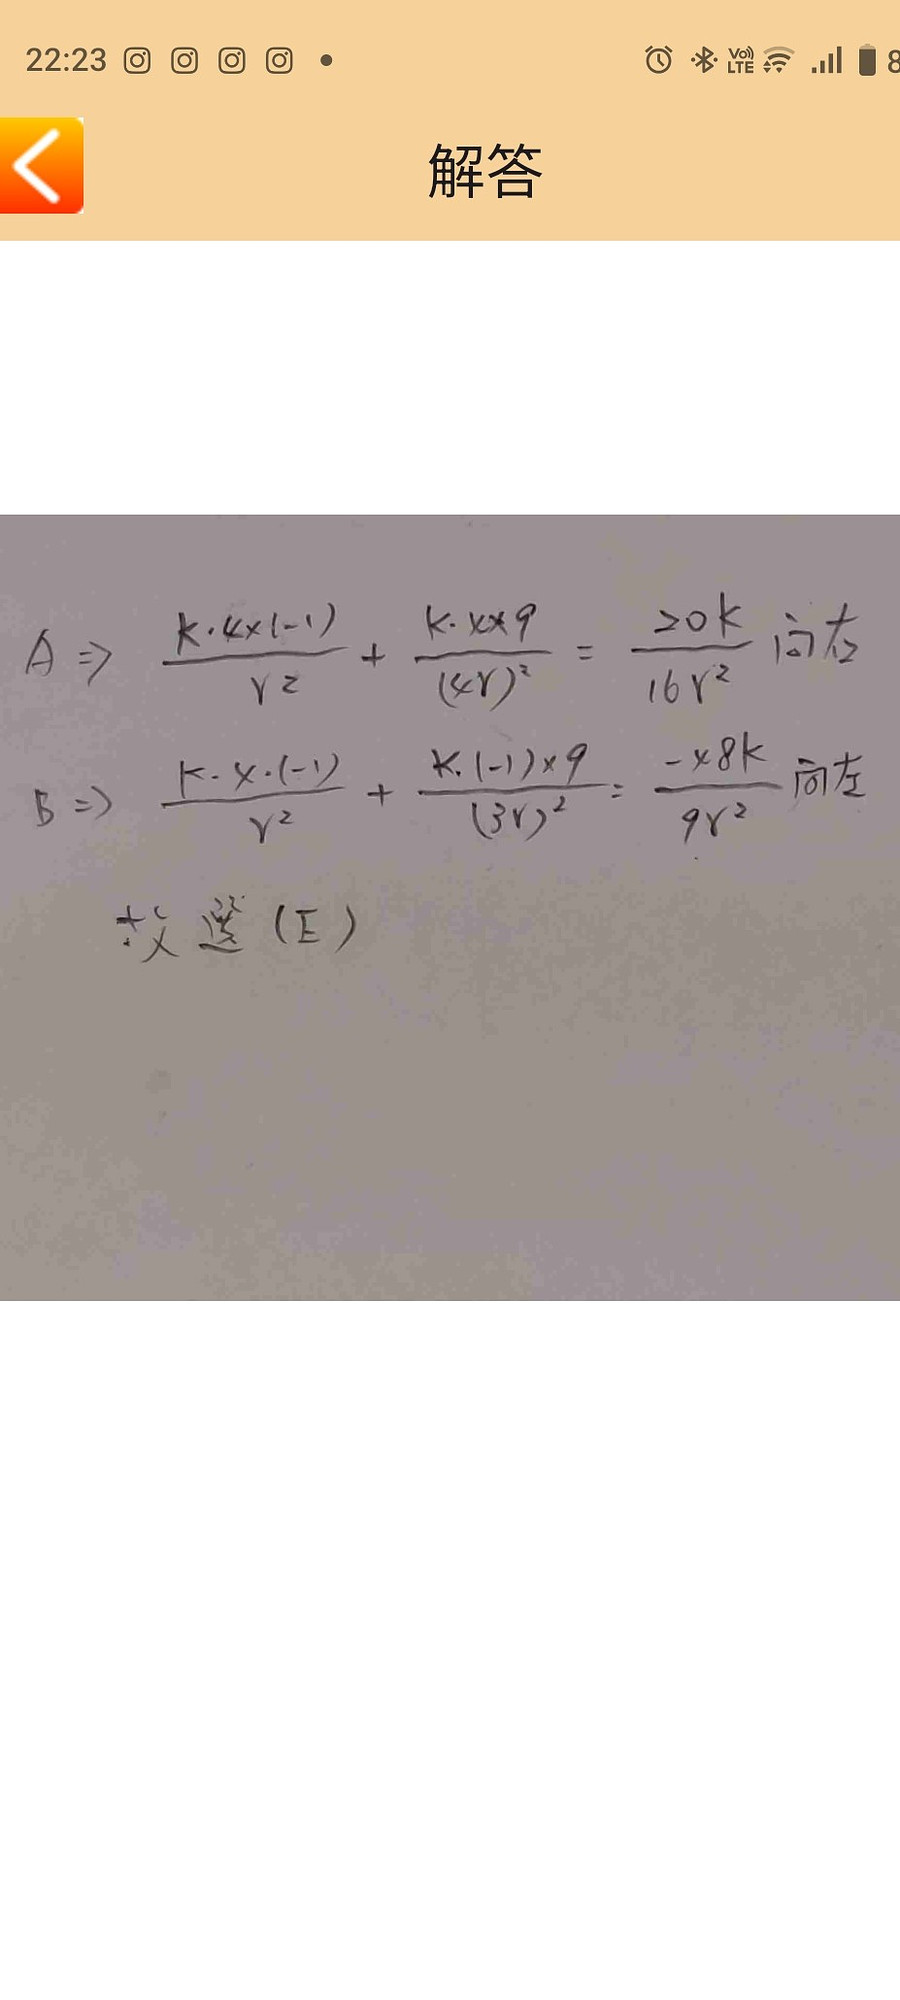 22:23
Vo)) LTE 8
解答
A => K·4×(-1)/r² + K·4×9/(4r)² = 20K/16r² 向右
B => K·4·(-1)/r² + K·(-1)×9/(3r)² = -48K/9r² 向左
故選(E)